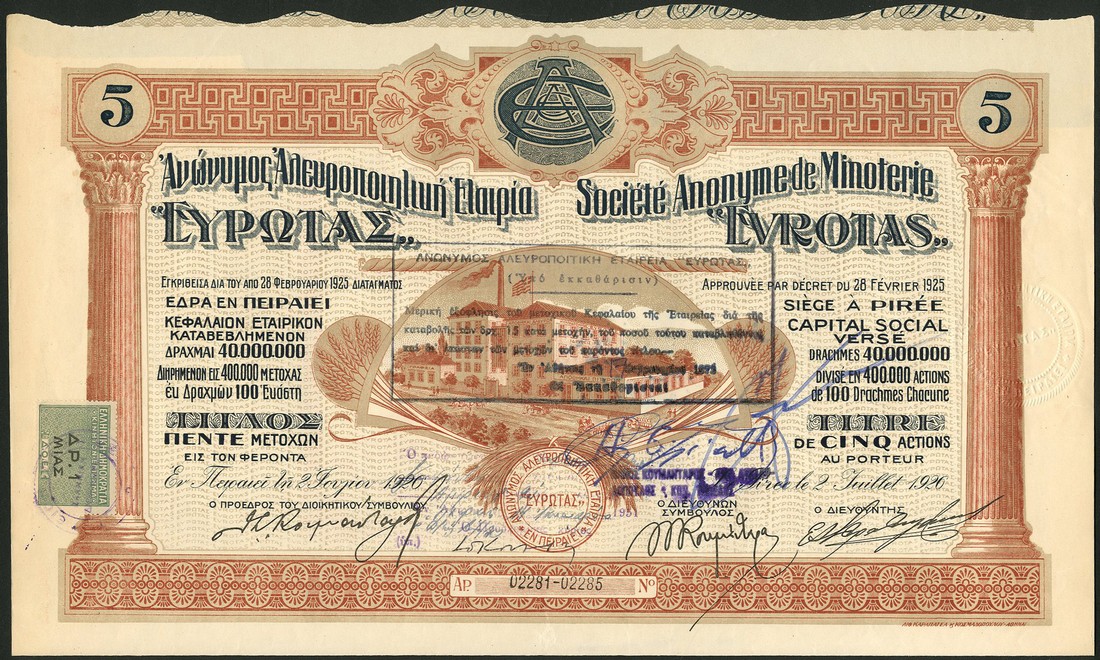 5
5
Ἀνώνυμος Ἀλευροποιητικὴ Ἑταιρία
"ΕΥΡΩΤΑΣ"
ΕΓΚΡΙΘΕΙΣΑ ΔΙΑ ΤΟΥ ΑΠΟ 28 ΦΕΒΡΟΥΑΡΙΟΥ 1925 ΔΙΑΤΑΓΜΑΤΟΣ
ΕΔΡΑ ΕΝ ΠΕΙΡΑΙΕΙ
ΚΕΦΑΛΑΙΟΝ ΕΤΑΙΡΙΚΟΝ
ΚΑΤΑΒΕΒΛΗΜΕΝΟΝ
ΔΡΑΧΜΑΙ 40.000.000
ΔΙΗΡΗΜΕΝΟΝ ΕΙΣ 400.000 ΜΕΤΟΧΑΣ
ἐκ Δραχμῶν 100 Ἑκάστη
ΤΙΤΛΟΣ
ΠΕΝΤΕ ΜΕΤΟΧΩΝ
ΕΙΣ ΤΟΝ ΦΕΡΟΝΤΑ
Ἐν Πειραιεῖ τῇ 2 Ἰουλίου 1926
Ο ΠΡΟΕΔΡΟΣ ΤΟΥ ΔΙΟΙΚΗΤΙΚΟΥ ΣΥΜΒΟΥΛΙΟΥ
Société Anonyme de Minoterie
"EVROTAS"
APPROUVÉE PAR DÉCRET DU 28 FÉVRIER 1925
SIÈGE A PIRÉE
CAPITAL SOCIAL
VERSE
DRACHMES 40.000.000
DIVISÉ EN 400.000 ACTIONS
de 100 Drachmes Chacune
TITRE
DE CINQ ACTIONS
AU PORTEUR
Pirée le 2 Juillet 1926
Ο ΔΙΕΥΘΥΝΩΝ
ΣΥΜΒΟΥΛΟΣ
Ο ΔΙΕΥΘΥΝΤΗΣ
ΑΝΩΝΥΜΟΣ ΑΛΕΥΡΟΠΟΙΤΙΚΗ ΕΤΑΙΡΕΙΑ "ΕΥΡΩΤΑΣ"
(Ὑπὸ ἐκκαθάρισιν)
Μερικὴ ἐξόφλησις τοῦ μετοχικοῦ Κεφαλαίου τῆς Ἑταιρείας διὰ τῆς
καταβολῆς τῶν δρχ. 15 κατὰ μετοχήν, τοῦ ποσοῦ τούτου καταβληθέντος
τῶν μετοχῶν τοῦ παρόντος τίτλου
Ἐν Ἀθήναις τῇ
Οἱ Ἐκκαθαρισταί
ΕΛΛΗΝΙΚΗ ΔΗΜΟΚΡΑΤΙΑ
ΔΡ. 1
ΜΙΑΣ
ΑΝΩΝΥΜΟΣ ΑΛΕΥΡΟΠΟΙΗΤΙΚΗ ΕΤΑΙΡΙΑ
"ΕΥΡΩΤΑΣ"
ΕΝ ΠΕΙΡΑΙΕΙ
ΑΡ. 02281-02285 Nº